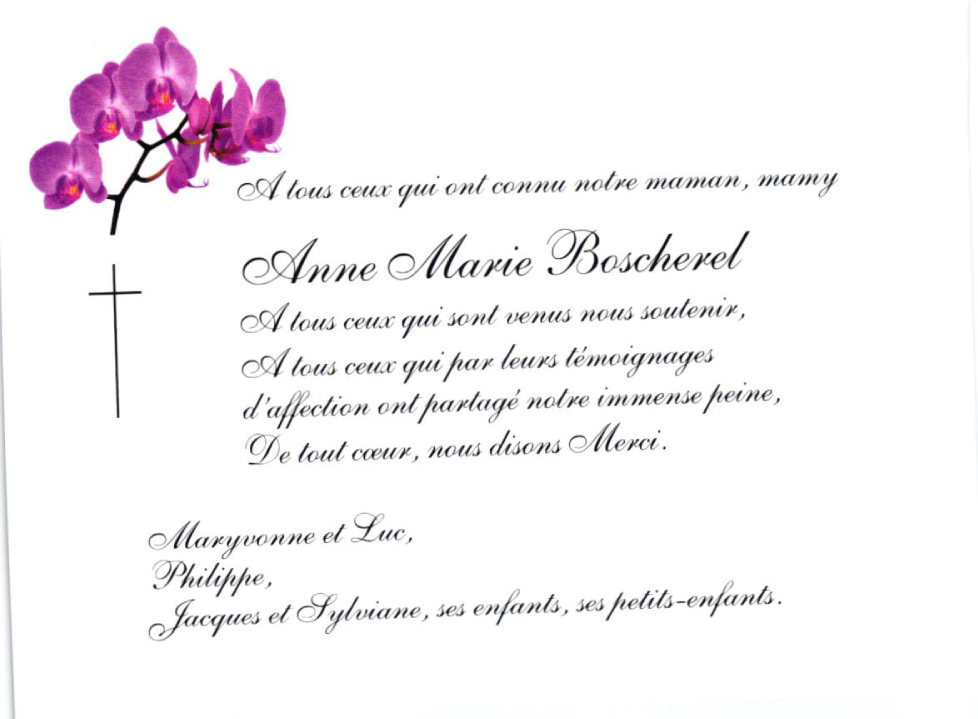 A tous ceux qui ont connu notre maman, mamy
Anne Marie Boscherel
A tous ceux qui sont venus nous soutenir,
A tous ceux qui par leurs témoignages
d'affection ont partagé notre immense peine,
De tout cœur, nous disons Merci.
Maryvonne et Luc,
Philippe,
Jacques et Sylviane, ses enfants, ses petits-enfants.